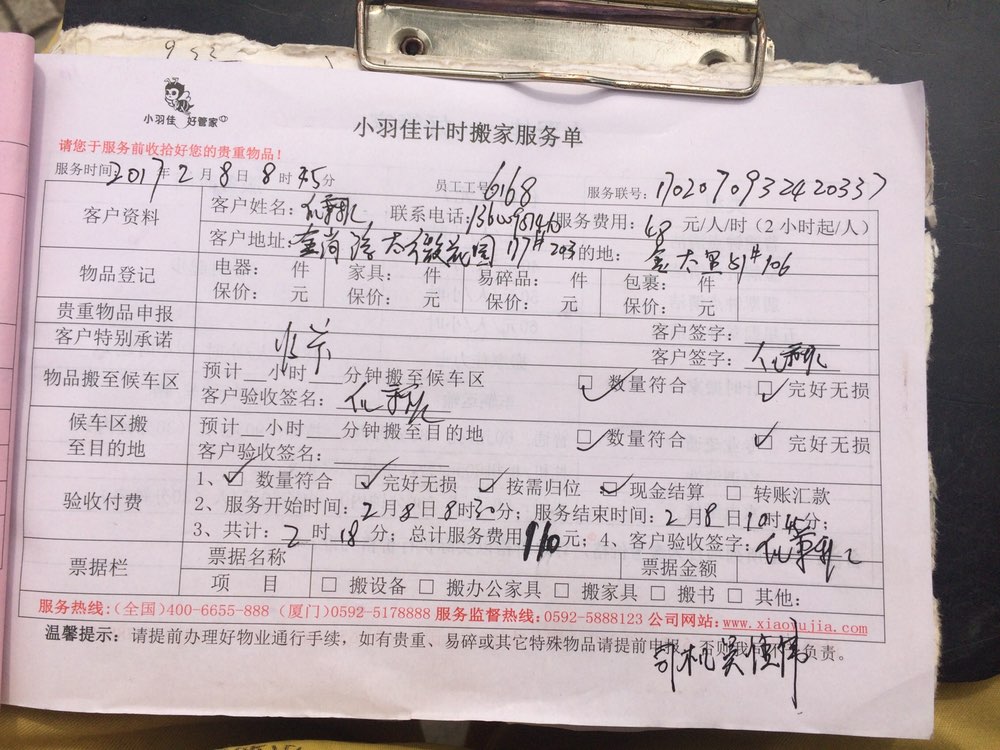 小羽佳 好管家
小羽佳计时搬家服务单
请您于服务前收拾好您的贵重物品！
服务时间：2017年2月8日8时35分 员工工号 6168 服务联号：170207093242 0337
客户资料 客户姓名： 联系电话： 服务费用：48 元/人/时（2小时起/人）
客户地址：金尚路太微花园117#203 目的地：金太里51#906
物品登记 电器： 件 家具： 件 易碎品： 件 包裹： 件
保价： 元 保价： 元 保价： 元 保价： 元
贵重物品申报 客户签字：
客户特别承诺 客户签字：
物品搬至候车区 预计__小时___分钟搬至候车区 数量符合 完好无损
客户验收签名：
候车区搬至目的地 预计__小时___分钟搬至目的地 数量符合 完好无损
客户验收签名：
验收付费 1、☑ 数量符合 ☑ 完好无损 ☑ 按需归位 ☑ 现金结算 □ 转账汇款
2、服务开始时间：2月8日8时30分；服务结束时间：2月8日10时45分；
3、共计：2时18分；总计服务费用110元；4、客户验收签字：
票据栏 票据名称 票据金额
项 目 □ 搬设备 □ 搬办公家具 □ 搬家具 □ 搬书 □ 其他:
服务热线:(全国)400-6655-888 (厦门)0592-5178888 服务监督热线:0592-5888123 公司网站:www.xiaoyujia.com
温馨提示：请提前办理好物业通行手续，如有贵重、易碎或其它特殊物品请提前申报，否则我司不负责。
司机